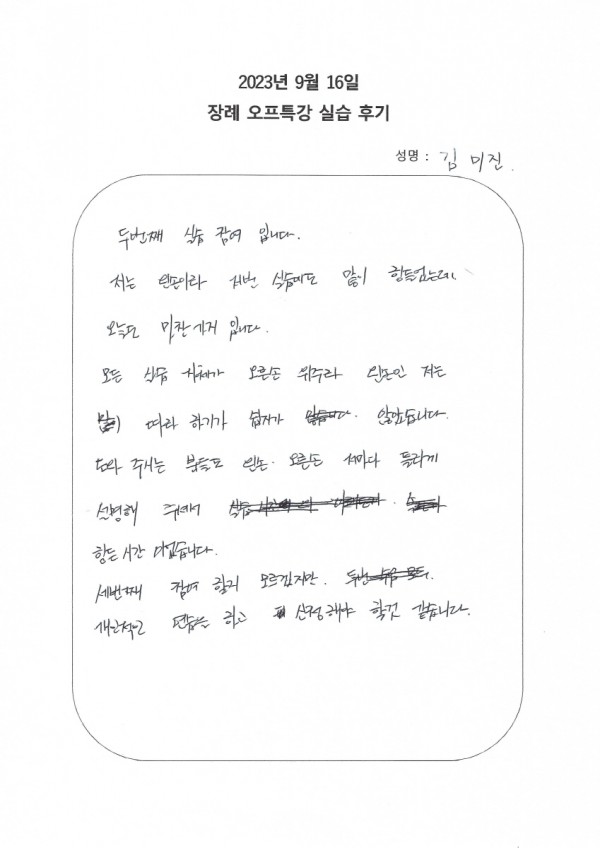 2023년 9월 16일
장례 오프특강 실습 후기
성명 : 김 미진.
두번째 실습 참여 입니다.
저는 왼손이라 저번 실습에도 많이 힘들었는데.
오늘도 마찬가지 입니다.
모든 실습 자체가 오른손 위주라 왼손인 저는
따라 하기가 쉽지가 않았습니다.
도와 주시는 분들도 왼손. 오른손 저마다 틀리게
설명해 주셔서
힘든 시간 이었습니다.
세번째 참여 할지 모르겠지만.
개인적인 연습을 하고 신청해야 할것 같습니다.